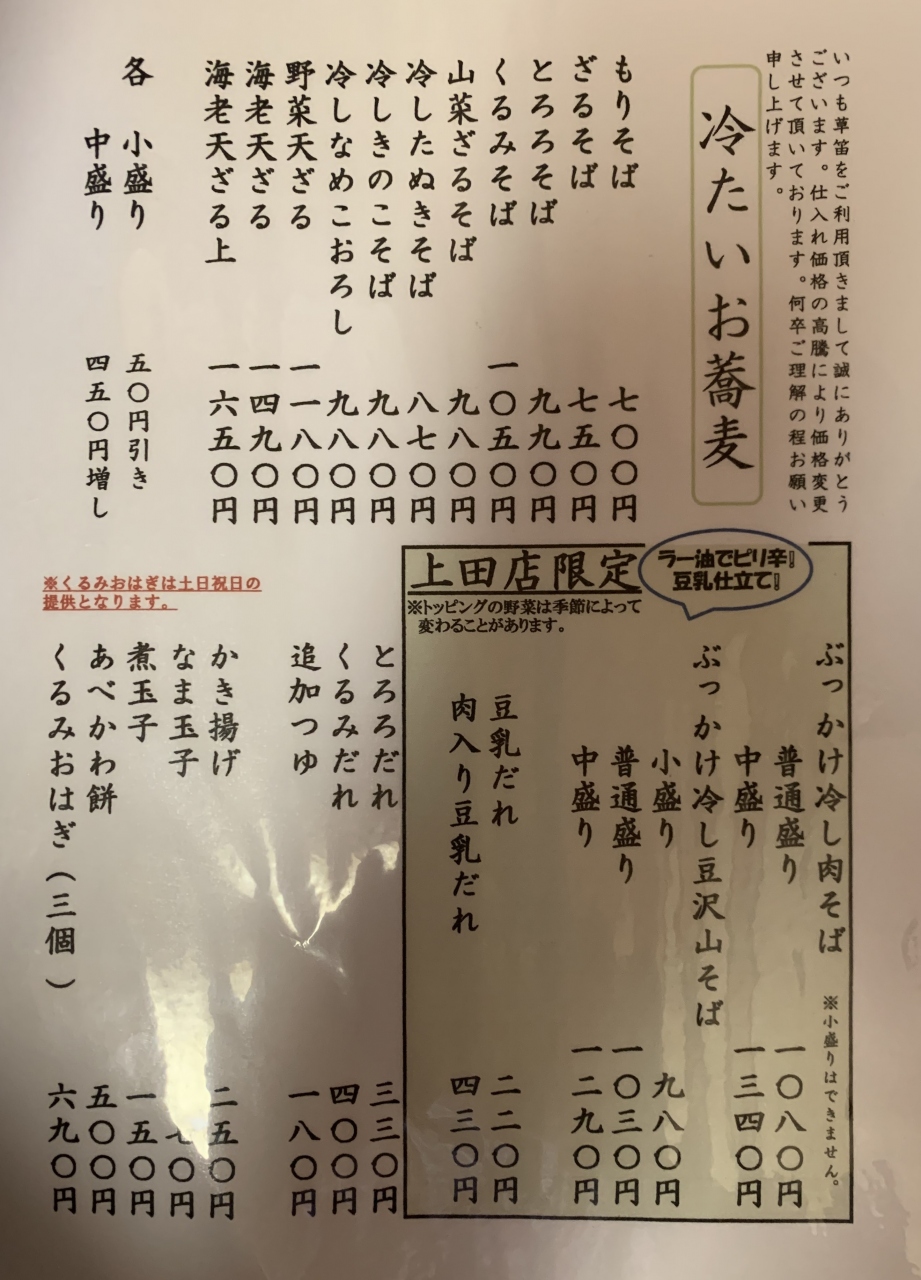 いつも草笛をご利用頂きまして誠にありがとう
ございます。仕入れ価格の高騰により価格変更
させて頂いております。何卒ご理解の程お願い
申し上げます。
冷たいお蕎麦
もりそば 七〇〇円
ざるそば 七五〇円
とろろそば 九九〇円
くるみそば 一〇五〇円
山菜ざるそば 九八〇円
冷したぬきそば 八七〇円
冷しきのこそば 九八〇円
冷しなめこおろし 九八〇円
野菜天ざる 一一八〇円
海老天ざる 一四九〇円
海老天ざる上 一六五〇円
各 小盛り 五〇円引き
中盛り 四五〇円増し
上田店限定
ラー油でピリ辛!
豆乳仕立て!
※トッピングの野菜は季節によって
変わることがあります。
ぶっかけ冷し肉そば ※小盛りはできません。
普通盛り 一〇八〇円
中盛り 一三四〇円
ぶっかけ冷し豆沢山そば
小盛り 九八〇円
普通盛り 一〇三〇円
中盛り 一二九〇円
豆乳だれ 二二〇円
肉入り豆乳だれ 四三〇円
とろろだれ 三三〇円
くるみだれ 四〇〇円
追加つゆ 一八〇円
※くるみおはぎは土日祝日の
提供となります。
かき揚げ 二五〇円
なま玉子 〇円
煮玉子 一五〇円
あべかわ餅 五〇〇円
くるみおはぎ(三個) 六九〇円